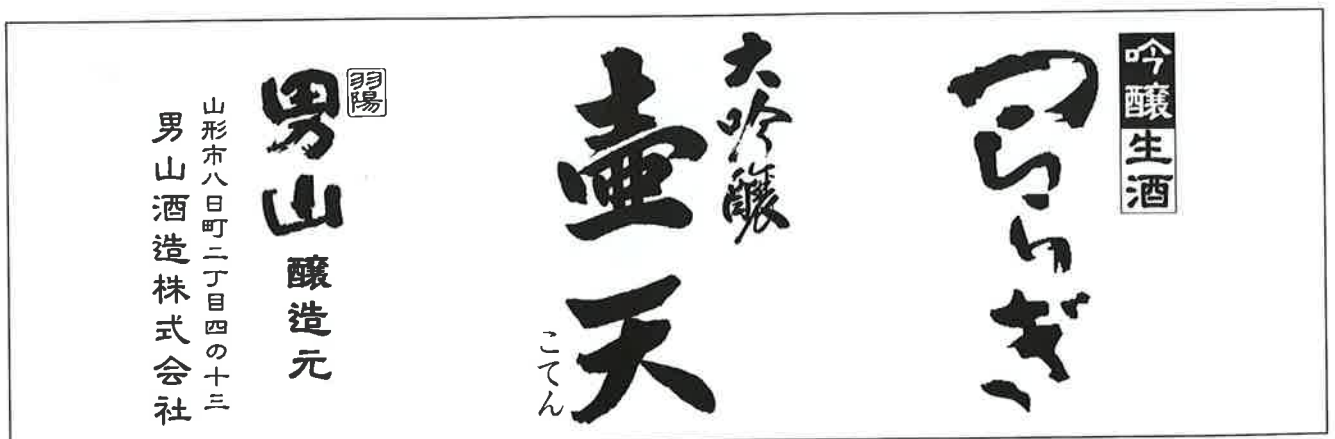 吟醸生酒
つららぎ
大吟醸
壷天
こてん
羽陽
男山醸造元
山形市八日町二丁目四の十三
男山酒造株式会社